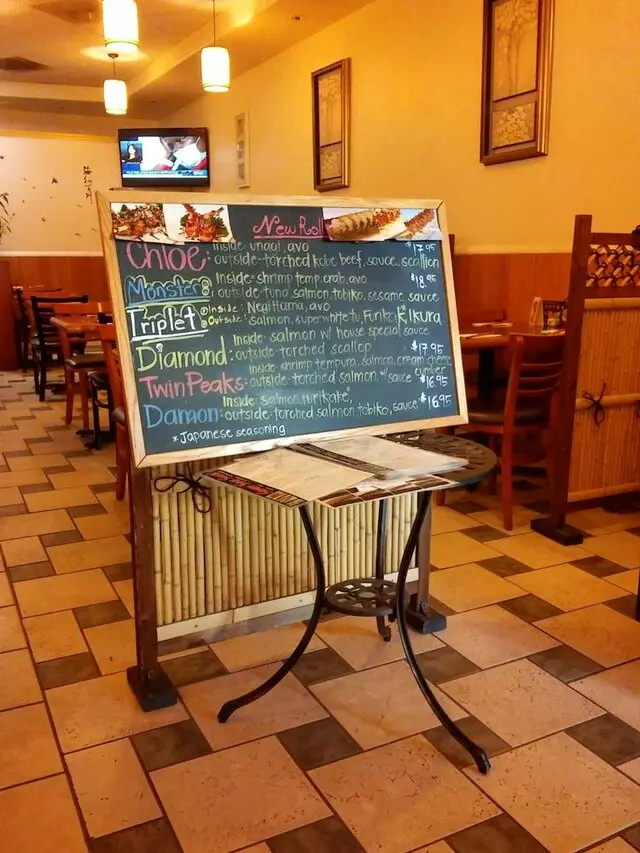 New Roll
Chloe: inside unagi, avo $17.95
outside-torched kobe beef, sauce, scallion
Monster: inside-shrimp temp, crab, avo $18.95
outside-tuna, salmon, tobiko, sesame sauce
Triplet: Inside: Negi tuna, avo
Outside: salmon, super white tu, Funka Kikura
Diamond: Inside salmon w/ house special sauce
outside-torched scallop $17.95
Twin Peaks: inside shrimp tempura, salmon, cream cheese,
outside-torched salmon, w/ sauce $16.95
Damon: Inside salmon, furikake*,
outside-torched salmon, tobiko, sauce $16.95
*Japanese seasoning